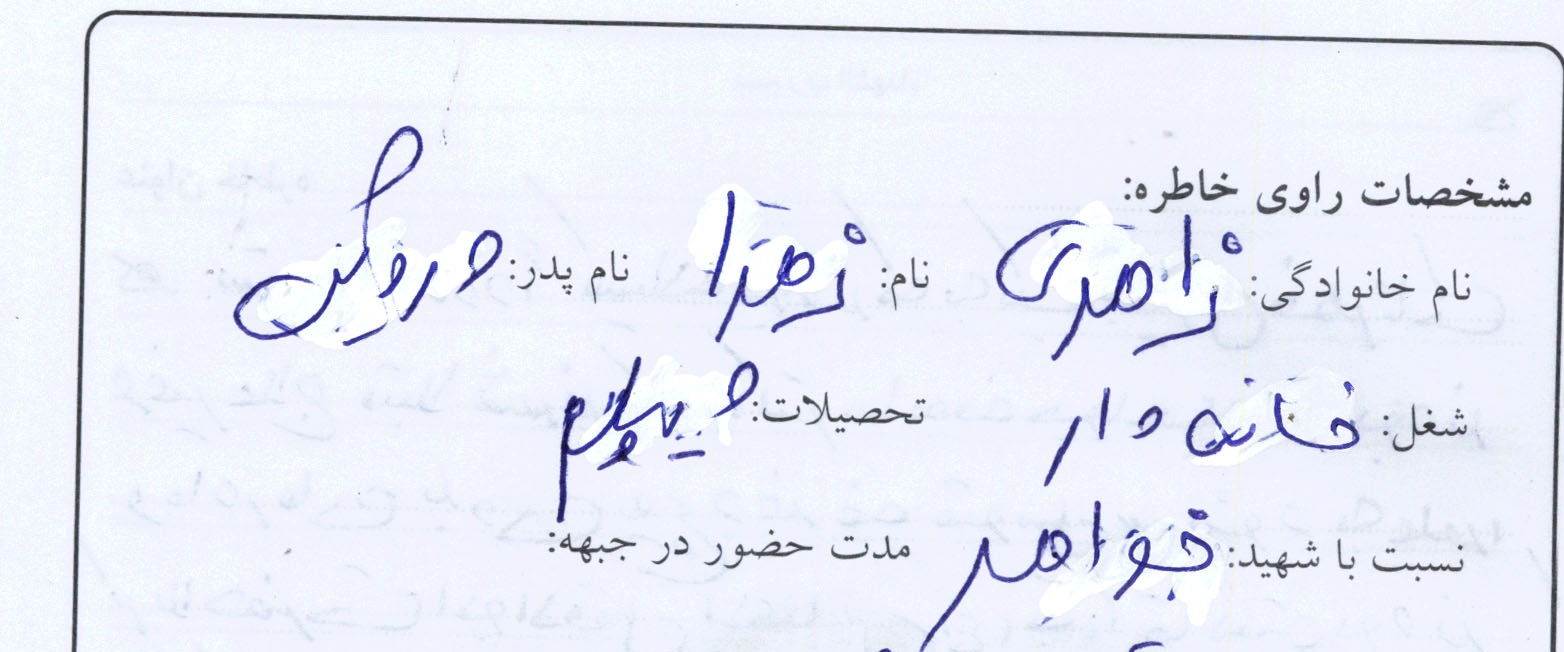 مشخصات راوی خاطره:
نام خانوادگی: زاهدی نام: زهرا نام پدر:
شغل: خانه دار تحصیلات: دیپلم
نسبت با شهید: خواهر مدت حضور در جبهه: